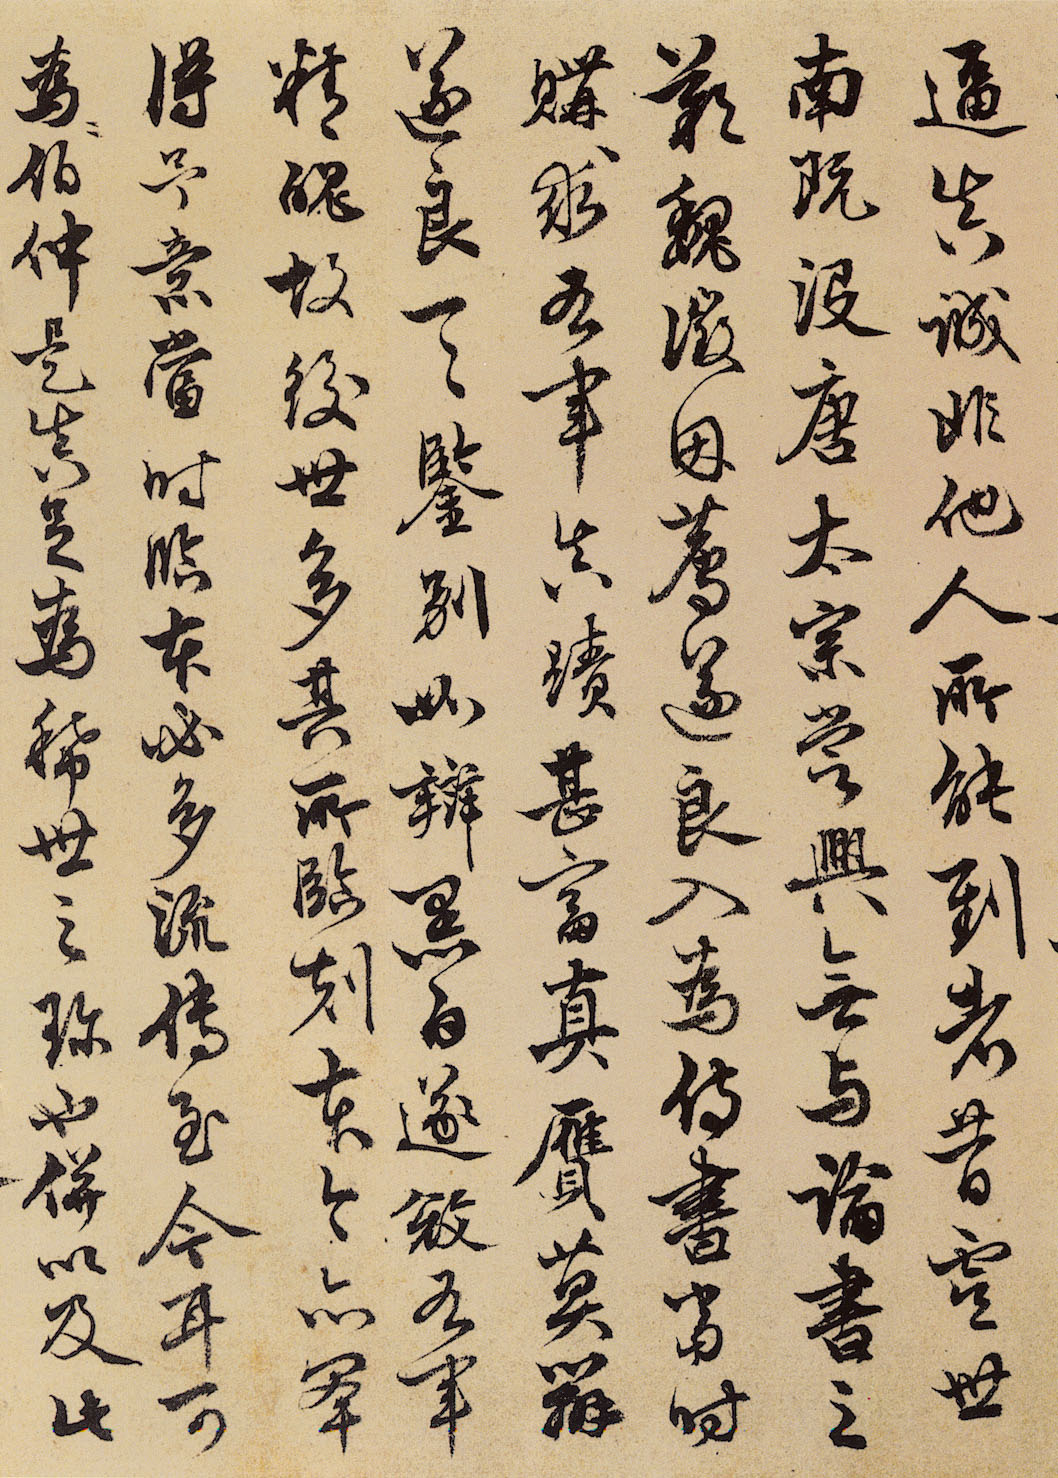 逼真誠非他人所能到者昔虞世
南既没唐太宗嘗興無与論書之
歎魏徵因薦遂良入為侍書當時
購求右軍真蹟甚富真贋莫辨
遂良一一鑒別如辨黑白遂斂右軍
精魄故後世多其所臨刻本今亦罕
得予意當時臨本必多流傳至今耳可
為伯仲是真足為稀世之珍也併以及此